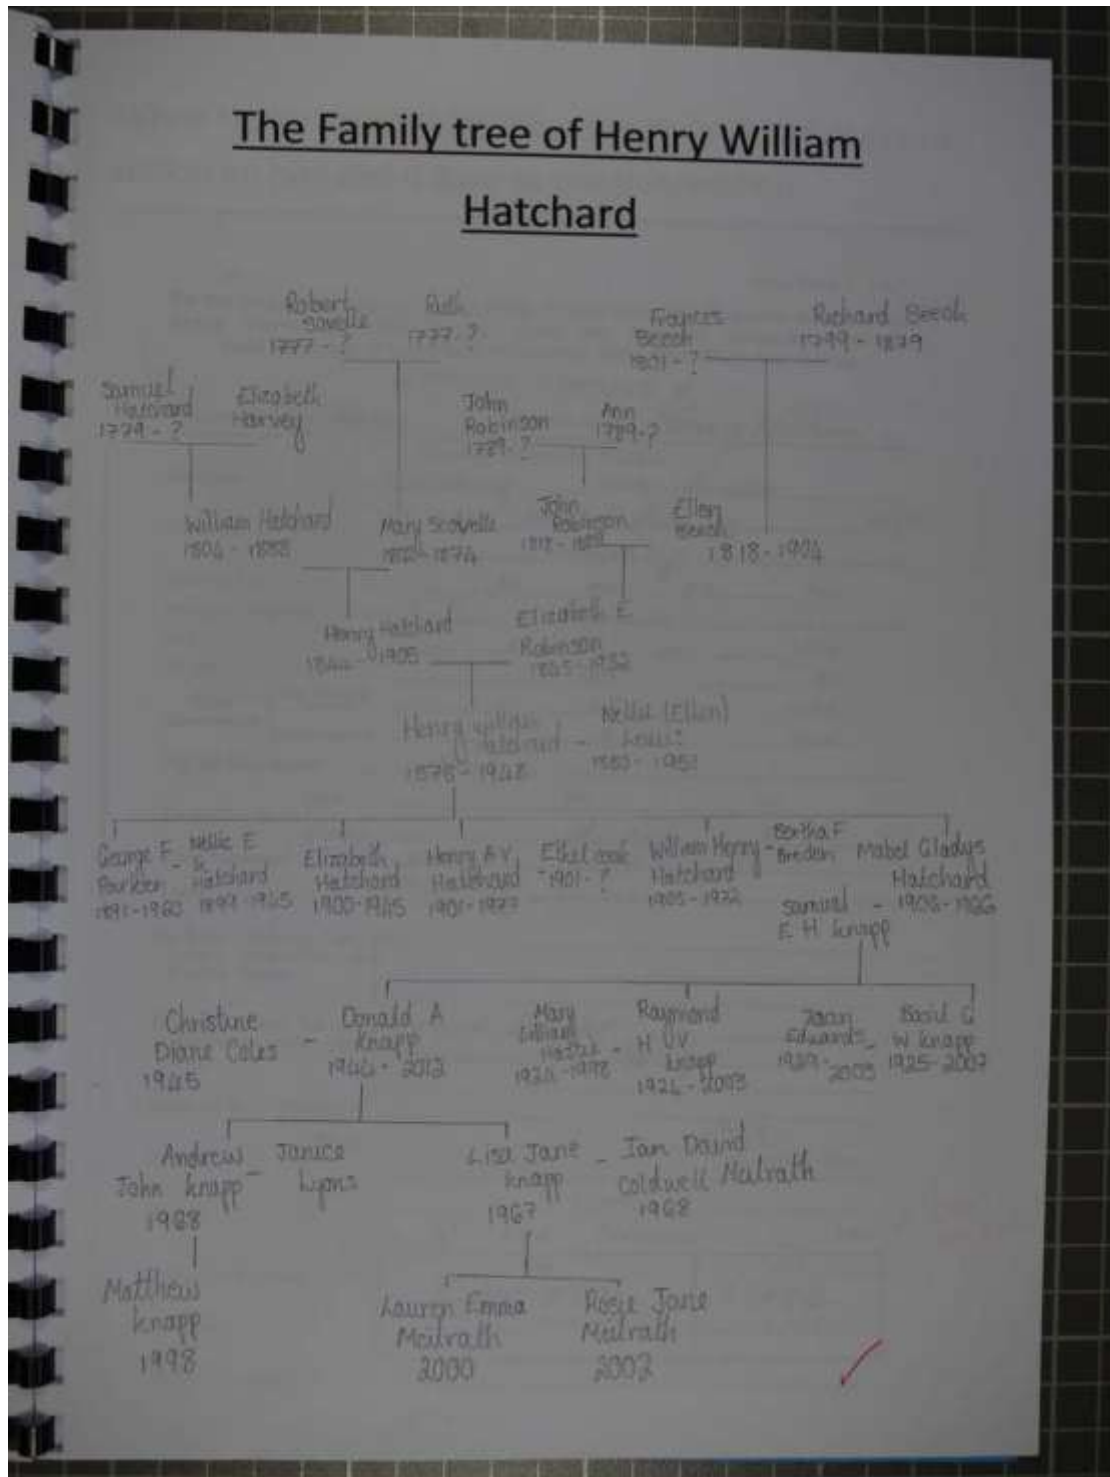 The Family tree of Henry William
Hatchard
Robert
Ruth
1777 - ?
1777 - ?
Frances
Beech
1801 - ?
Richard Beech
1799 - 1879
Samuel
Hatchard
1779 - ?
Elizabeth
Harvey
John
Robinson
1789 - ?
Ann
1789 - ?
William Hatchard
1804 - 1888
Mary Scovelle
- 1874
John
Robinson
1818 -
Ellen
Beech
1818 - 1904
Henry Hatchard
1844 - 1905
Elizabeth E
Robinson
1845 - 1932
Henry William
Hatchard -
1878 - 1948
Nellie (Ellen)
George F -
1891 - 1960
Nellie E
Hatchard
1899 - 1945
Elizabeth
Hatchard
1900 - 1945
Henry A V
Hatchard
1901 - 1977
Ethel Cook
1901 - ?
William Henry -
Hatchard
1905 - 1972
Bertha F
Mabel Gladys
Hatchard
Samuel -
E H Knapp
Christine
Diane Coles -
1945
Donald A
Knapp
1944 - 2012
Mary
Lillian
Raymond
H U V
Knapp
1926 - 2003
Joan
Edwards -
1929 - 2003
Basil G
W Knapp
1925 - 2007
Andrew -
John Knapp
1968
Janice
Lyons
Lisa Jane -
Knapp
1967
Ian David
Coldwell Mcilrath
1968
Matthew
Knapp
1998
Lauren Emma
Mcilrath
2000
Rosie Jane
Mcilrath
2002